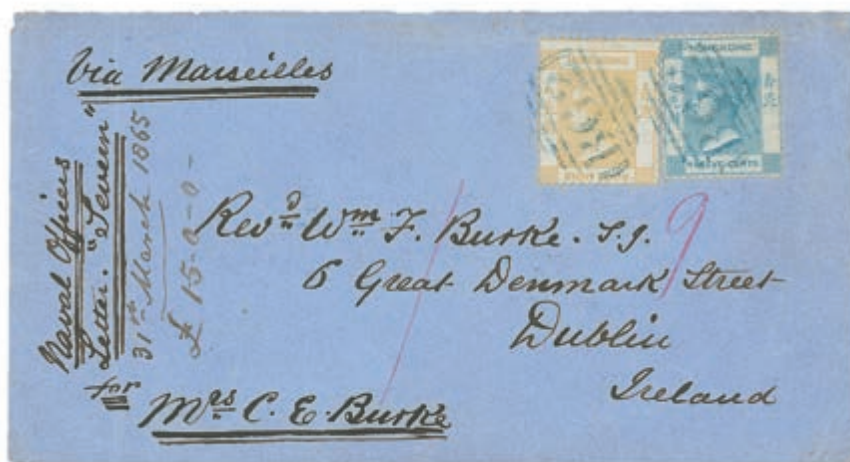 Via Marseilles
Naval Officers
Letter. "Severn"
31st March 1865
£15-0-0-
for
Mrs C. E. Burke
Revd Wm F. Burke. S.J.
6 Great Denmark Street
Dublin
Ireland
HONG KONG
9